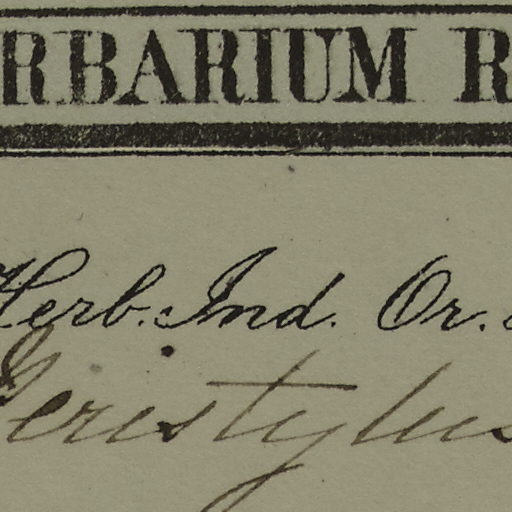 RBARIUM R
Herb. Ind. Or.
Peristylus